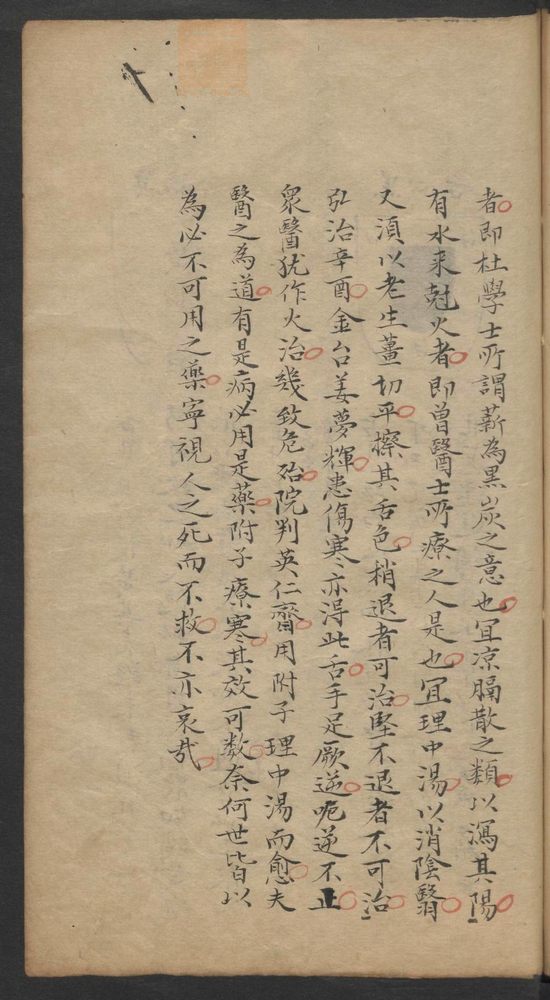 者即杜學士所謂薪為黑炭之意也冝凉膈散之類以瀉其陽
有水来尅火者即曽醫士所療之人是也冝理中湯以消陰翳
又湏以老生薑切平擦其舌色稍退者可治堅不退者不可治
弘治辛酉金台姜夢輝患傷寒亦淂此舌手足厥逆呃逆不止
衆醫犹作火治幾致危殆院判英仁齋用附子理中湯而愈夫
醫之為道有是病必用是藥附子療寒其效可数奈何世皆以
為必不可用之藥寧視人之死而不救不亦哀哉